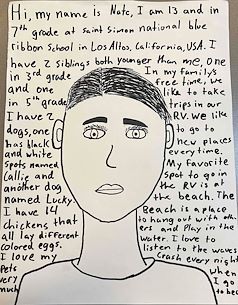 Hi, my name is Nate, I am 13 and in
7th grade at Saint Simon national blue
ribbon School in Los Altos, California, USA. I
have 2 Siblings both younger than me, one
in 3rd grade
and one
in 5th grade
I have 2
dogs, one
has black
and white
spots named
Callie and
another dog
named Lucky.
I have 14
chickens that
all lay different
colored eggs.
I love my
Pets
very
much
In my family's
free time, we
like to take
trips in our
RV. we like
to go to
new places
every time.
My Favorite
spot to go in
the RV is at
the beach. The
Beach is a place
to hang out with oth
ers and Play in the
water. I love to
listen to the waves
crash every night
when
I go
to bed